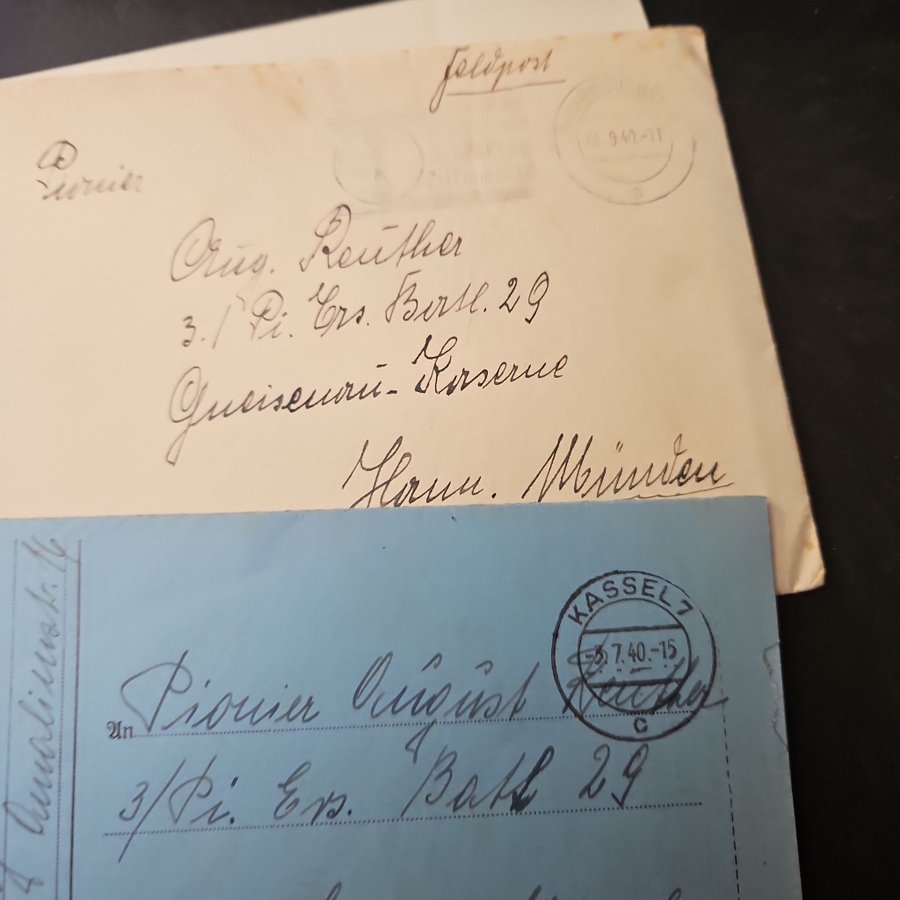 Feldpost
9.40.-11
Pionier
Aug. Reuther
3./Pi. Ers. Batl. 29
Gneisenau-Kaserne
Hann. Münden
KASSEL 7
-3.7.40.-15
c
An Pionier August Reuther
3/Pi. Ers. Batl 29